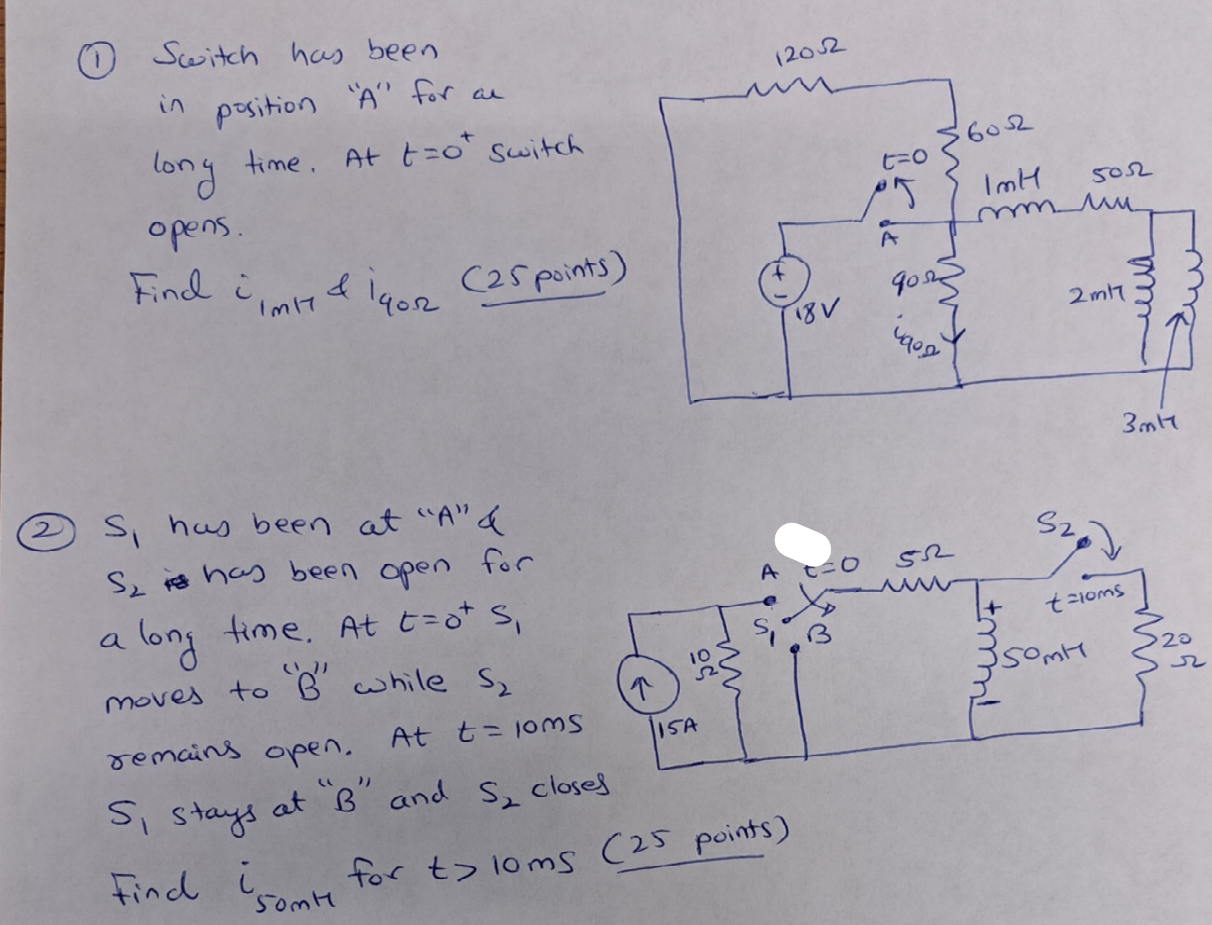 ① Switch has been
in position "A" for a
long time. At t=0⁺ switch
opens.
Find i₁mH & i₉₀Ω (25 points)
120Ω
60Ω
t=0
1mH 50Ω
A
+
-
18V
90Ω
i₉₀Ω
2mH
3mH
② S₁ has been at "A" &
S₂ has been open for
a long time. At t=0⁺ S₁
moves to "B" while S₂
remains open. At t=10ms
S₁ stays at "B" and S₂ closes
Find i₅₀mH for t>10ms (25 points)
S₂
A t=0 5Ω
t=10ms
S₁ B
+
10
Ω
50mH
20
Ω
-
15A